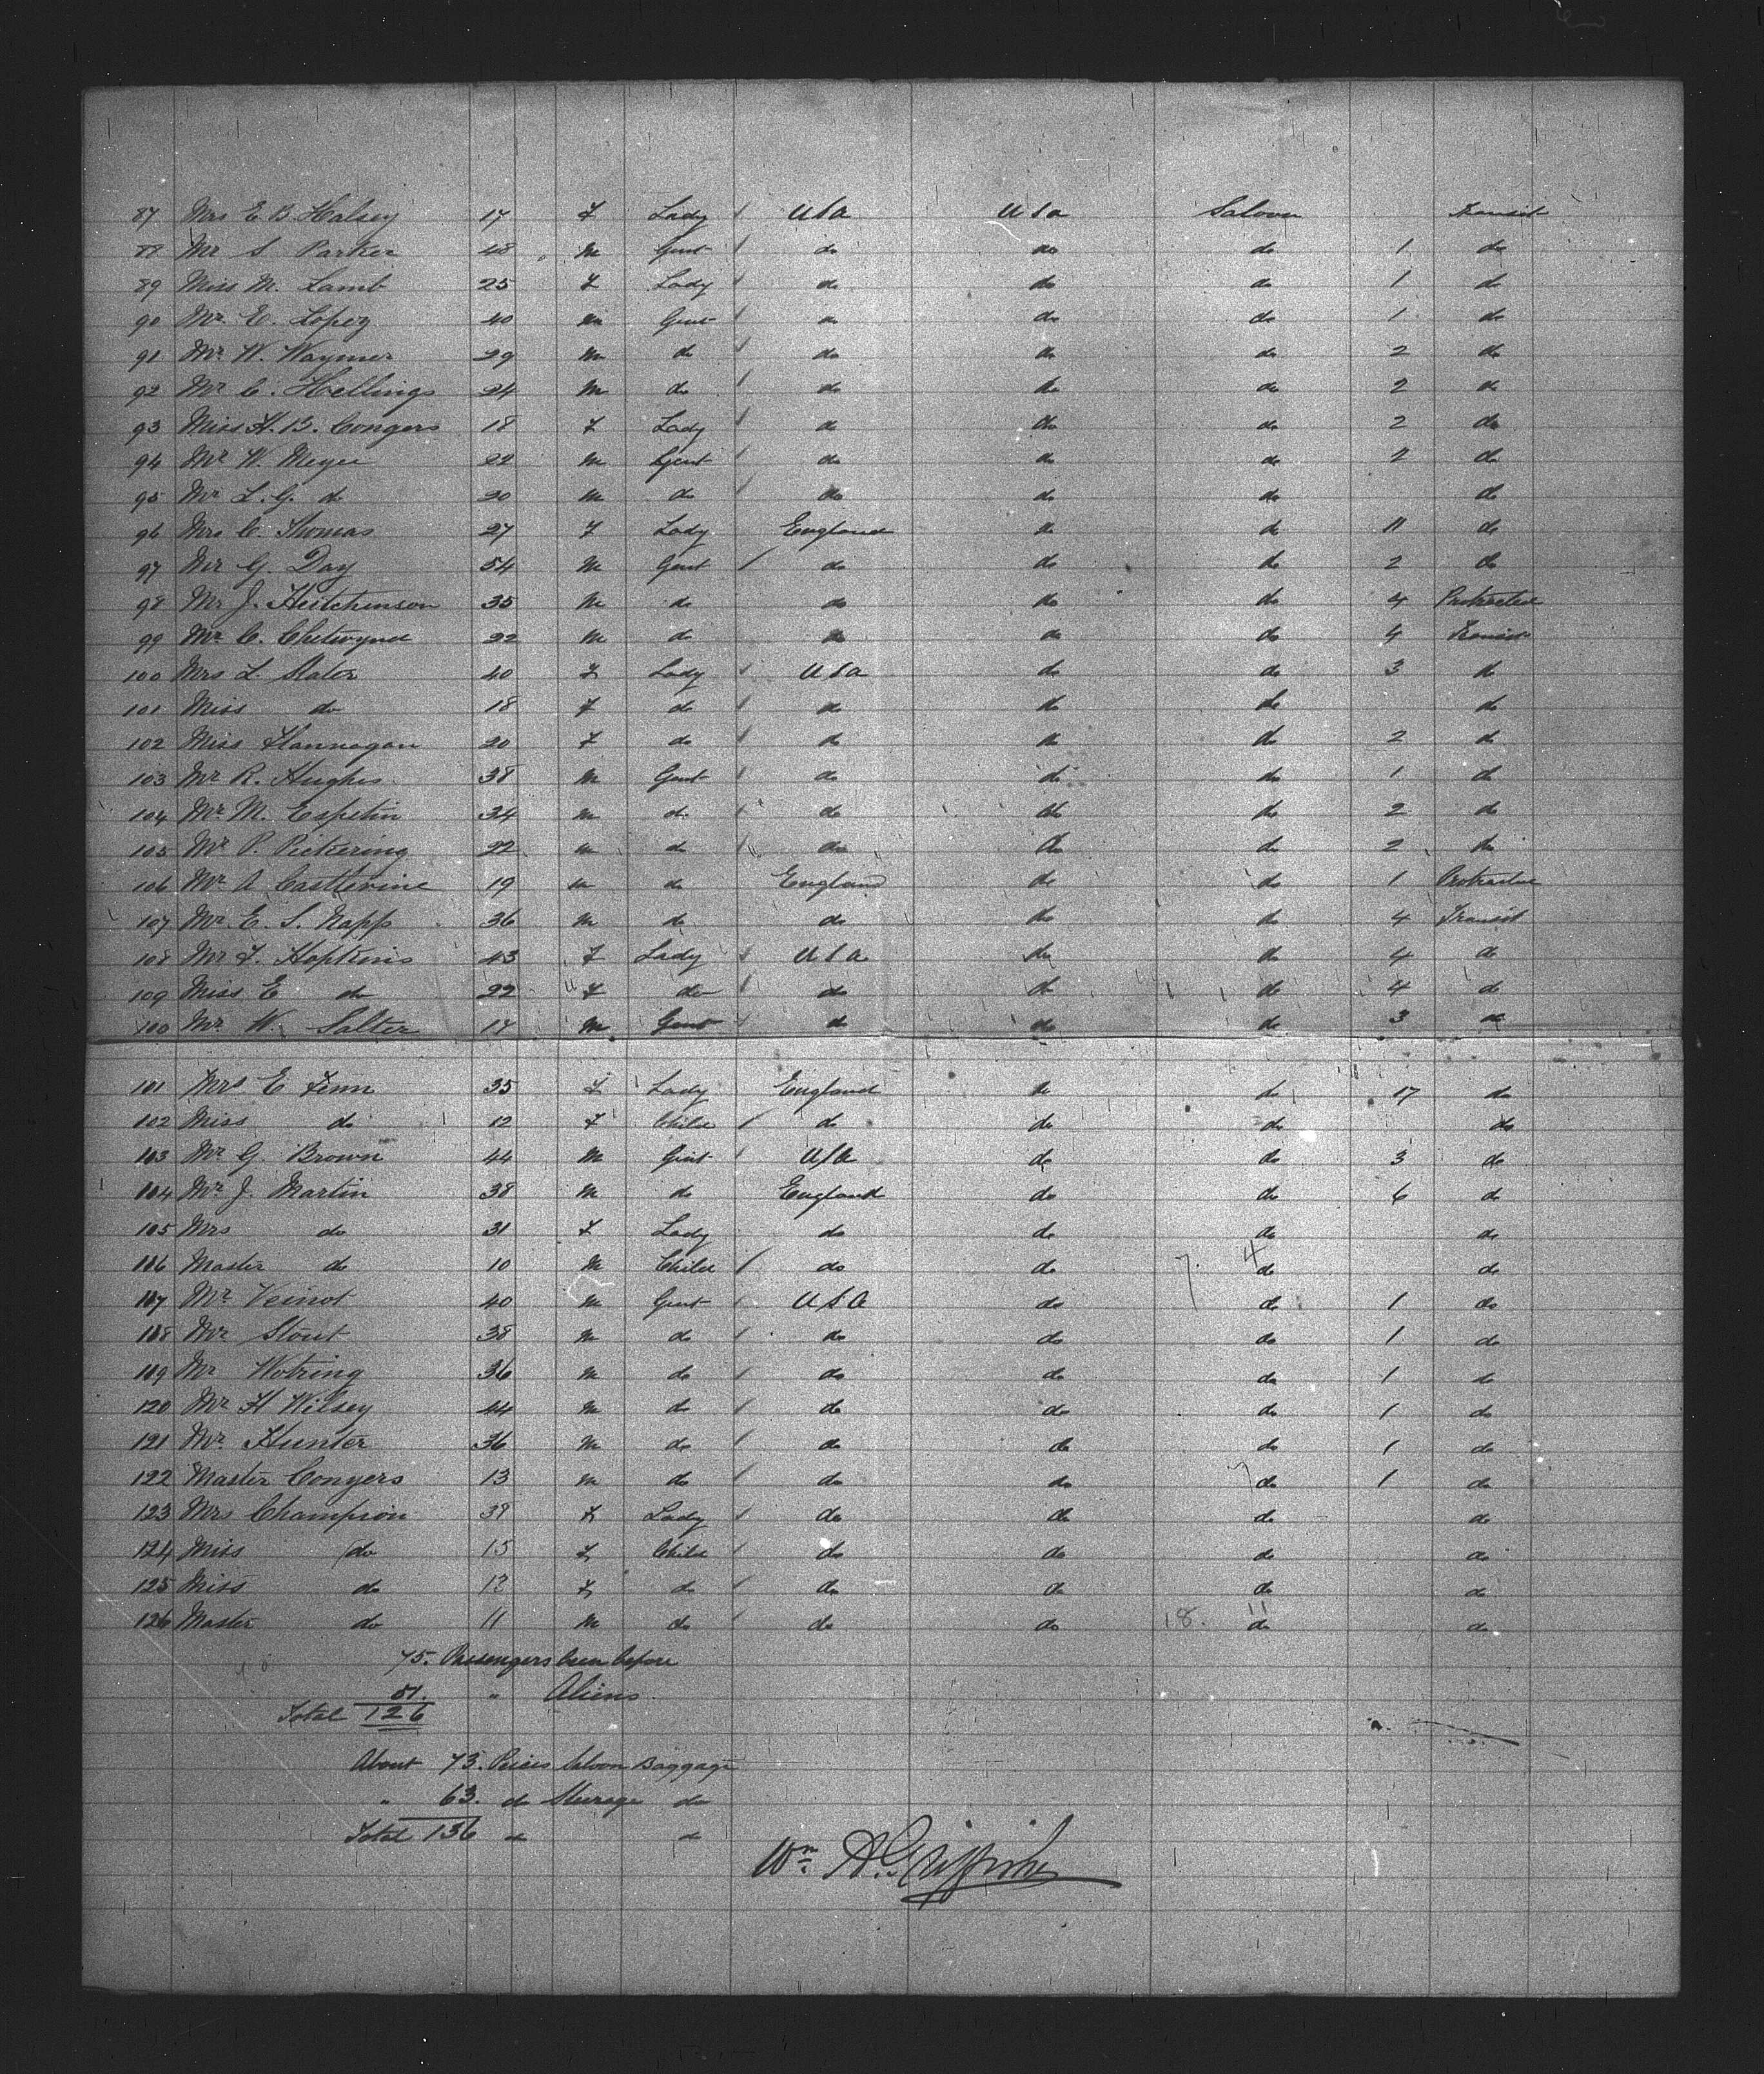 87 Mrs E. B. Halsey 17 F Lady USA USA Saloon Transit
88 Mr S. Parker 48 M Gent do do do 1 do
89 Miss M. Lamb 25 F Lady do do do 1 do
90 Mr E. Lopez 40 M Gent do do do 1 do
91 Mr W. Waymer 29 M do do do do 2 do
92 Mr C. Hellings 24 M do do do do 2 do
93 Miss H. B. Congers 18 F Lady do do do 2 do
94 Mr W. Meyer 22 M Gent do do do 2 do
95 Mr L. G. do 20 M do do do do do
96 Mrs C. Thomas 27 F Lady England do do 11 do
97 Mr G. Day 54 M Gent do do do 2 do
98 Mr J. Heitchinson 35 M do do do do 4 Protracted
99 Mr C. Chetwynd 22 M do do do do 4 Transit
100 Mrs L. Slater 40 F Lady USA do do 3 do
101 Miss do 18 F do do do do do
102 Miss Flannagan 20 F do do do do 2 do
103 Mr R. Hughes 38 M Gent do do do 1 do
104 Mr M. Espetin 34 M do do do do 2 do
105 Mr P. Pickering 22 M do do do do 2 do
106 Mr A Castlevine 19 M do England do do 1 Protracted
107 Mr E. S. Napp 36 M do do do do 4 Transit
108 Mr F. Hopkins 43 F Lady USA do do 4 do
109 Miss E do 22 F do do do do 4 do
100 Mr W. Salter 17 M Gent do do do 3 do
101 Mrs E Fenn 35 F Lady England do do 17 do
102 Miss do 12 F Child do do do do
103 Mr G. Brown 44 M Gent USA do do 3 do
104 Mr J. Martin 38 M do England do do 6 do
105 Mrs do 31 F Lady do do do do
106 Master do 10 M Child do do 7. 4 do do
107 Mr Veinot 40 M Gent USA do do 1 do
108 Mr Stout 38 M do do do do 1 do
109 Mr Wotring 36 M do do do do 1 do
120 Mr H Wilsey 44 M do do do do 1 do
121 Mr Hunter 36 M do do do do 1 do
122 Master Conyers 13 M do do do do 1 do
123 Mrs Champion 39 F Lady do do do do
124 Miss do 15 F Child do do do do
125 Miss do 12 F do do do do do
126 Master do 11 M do do do 18. 11 do do
75. Passengers been before
51. " Aliens
Total 126
About 73. Peices Saloon Baggage
" 63. do Steerage do
Total 136 do do
Wm A. Griffiths